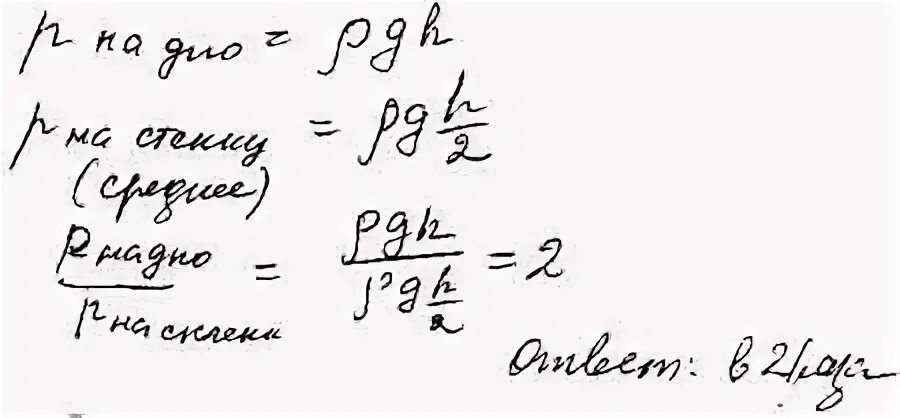 p на дно = ρgh
p на стенку = ρg h/2
(среднее)
p на дно / p на стенки = ρgh / ρg h/2 = 2
Ответ: в 2 раза